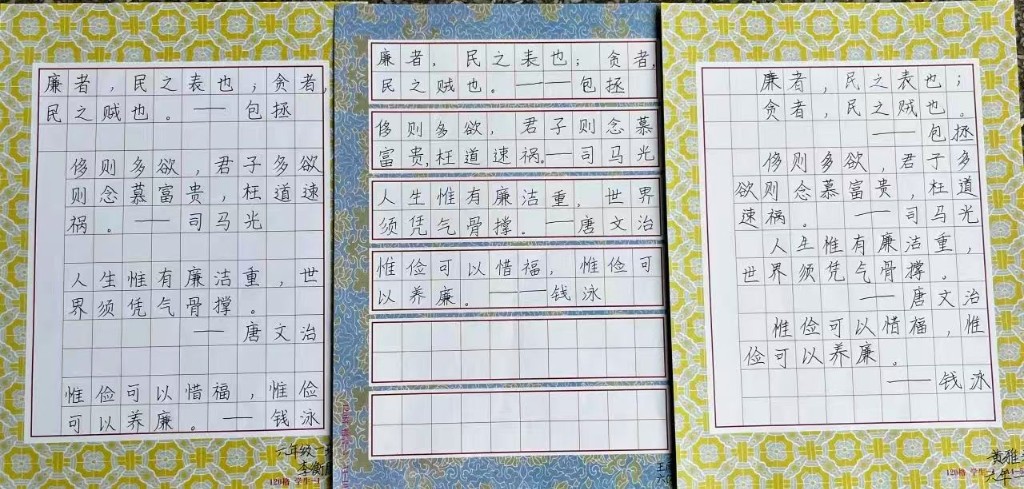 廉者，民之表也；贪者，
民之贼也。——包拯
侈则多欲，君子多欲
则念慕富贵，枉道速
祸。——司马光
人生惟有廉洁重，世
界须凭气骨撑。
——唐文治
惟俭可以惜福，惟俭
可以养廉。——钱泳
六年级
120格 学生
廉者，民之表也；贪者，
民之贼也。——包拯
侈则多欲，君子则念慕
富贵，枉道速祸。——司马光
人生惟有廉洁重，世界
须凭气骨撑。——唐文治
惟俭可以惜福，惟俭可
以养廉。——钱泳
廉者，民之表也；
贪者，民之贼也。
——包拯
侈则多欲，君子多
欲则念慕富贵，枉道
速祸。——司马光
人生惟有廉洁重，
世界须凭气骨撑。
——唐文治
惟俭可以惜福，惟
俭可以养廉。
——钱泳
黄雅
六年
120格 学生